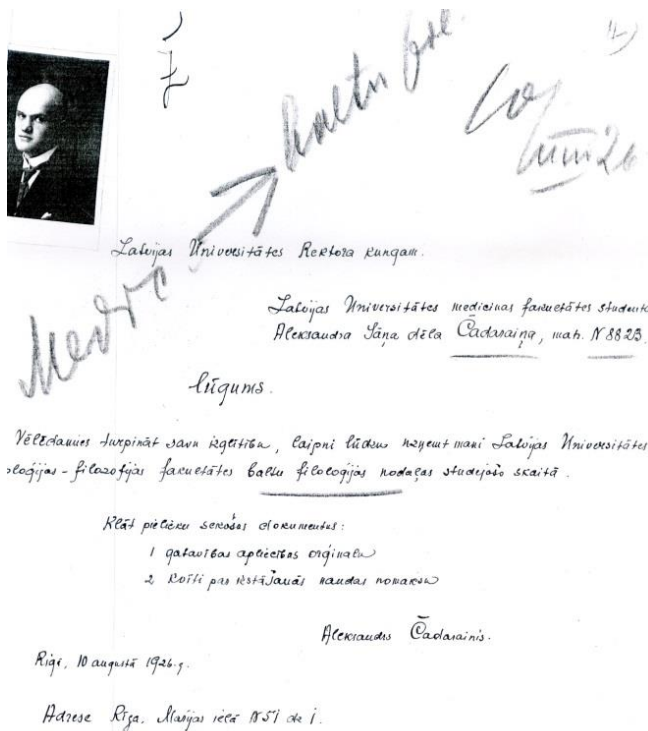 baltu fil.
Medic
Latvijas Universitātes Rektora kungam.
Latvijas Universitātes medicinas fakultātes studenta
Aleksandra Jāņa dēla Čadaraiņa, mat. N 8823
lūgums.
Vēlēdamies turpināt savu izglītību, laipni lūdzu uzņemt mani Latvijas Universitātes
oloģijas-filozofijas fakultātes baltu filoloģijas nodaļas studējošo skaitā.
Klāt pielieku sekošus dokumentus:
1 gatavības apliecības oriģinalu
2 kvīti par iestāšanās naudas nomaksu
Aleksandrs Čadarainis.
Rīgā, 10 augustā 1926.g.
Adrese Rīga, Marijas ielā N 51 dz 1.